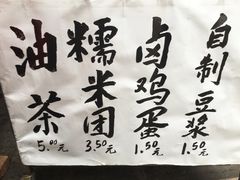 油茶 5.00元
糯米团 3.50元
卤鸡蛋 1.50元
自制豆浆 1.50元